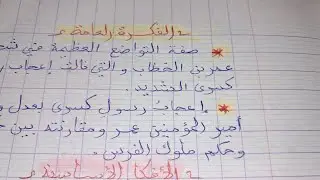 الفكرة العامة :
صفة التواضع العظيمة في شخ
عمر بن الخطاب والتي نالت إعجاب ر
كسرى الشديد.
إعجاب رسول كسرى بعدل و
أمير المؤمنين عمر ومقارنته بين
وحكم ملوك الفرس.
الأفكار الأساسية :